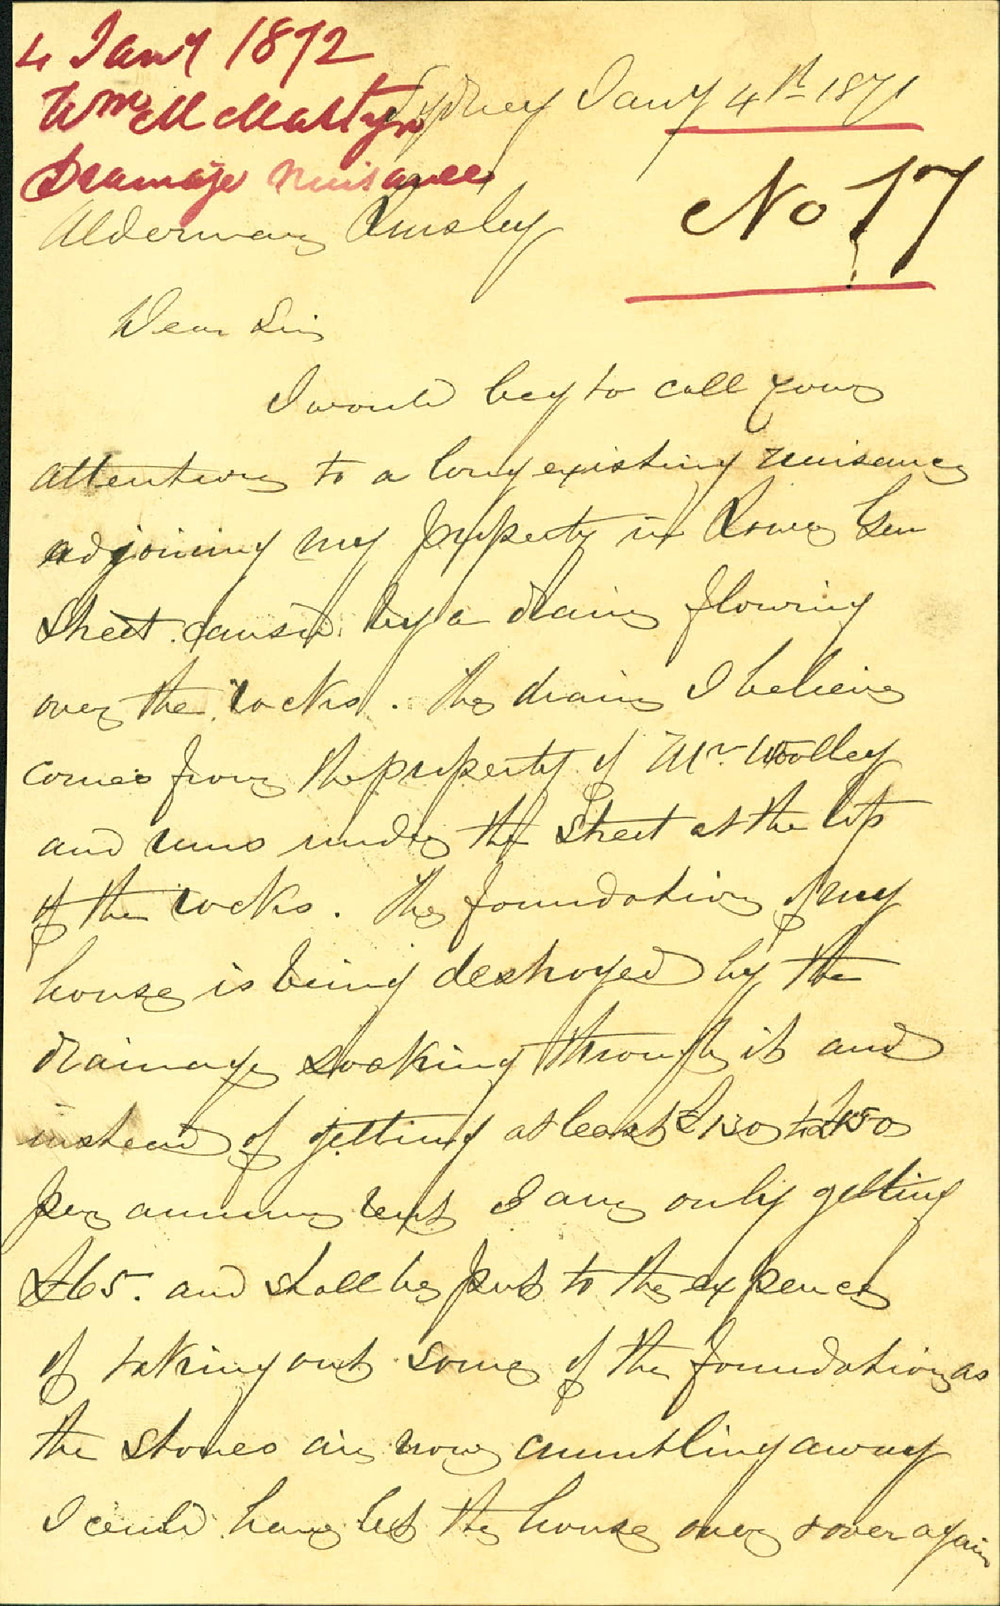 4 Jany 1872
Wm McMartyn
Drainage nuisance
Sydney Jany 4th 1871
No 17
Alderman
Dear Sir
I would beg to call your
attention to a long existing nuisance
adjoining my property in Lower Gen
Street caused by a drain flowing
over the rocks. The drain I believe
comes from the property of Mr. Woolley
and runs under the Street at the top
of the rocks. The foundation of my
house is being destroyed by the
drainage soaking through it and
instead of getting at least £130 to £150
per annum rent I am only getting
£65. and shall be put to the expence
of taking out some of the foundation as
the stones are now crumbling away
I could have let the house over & over again